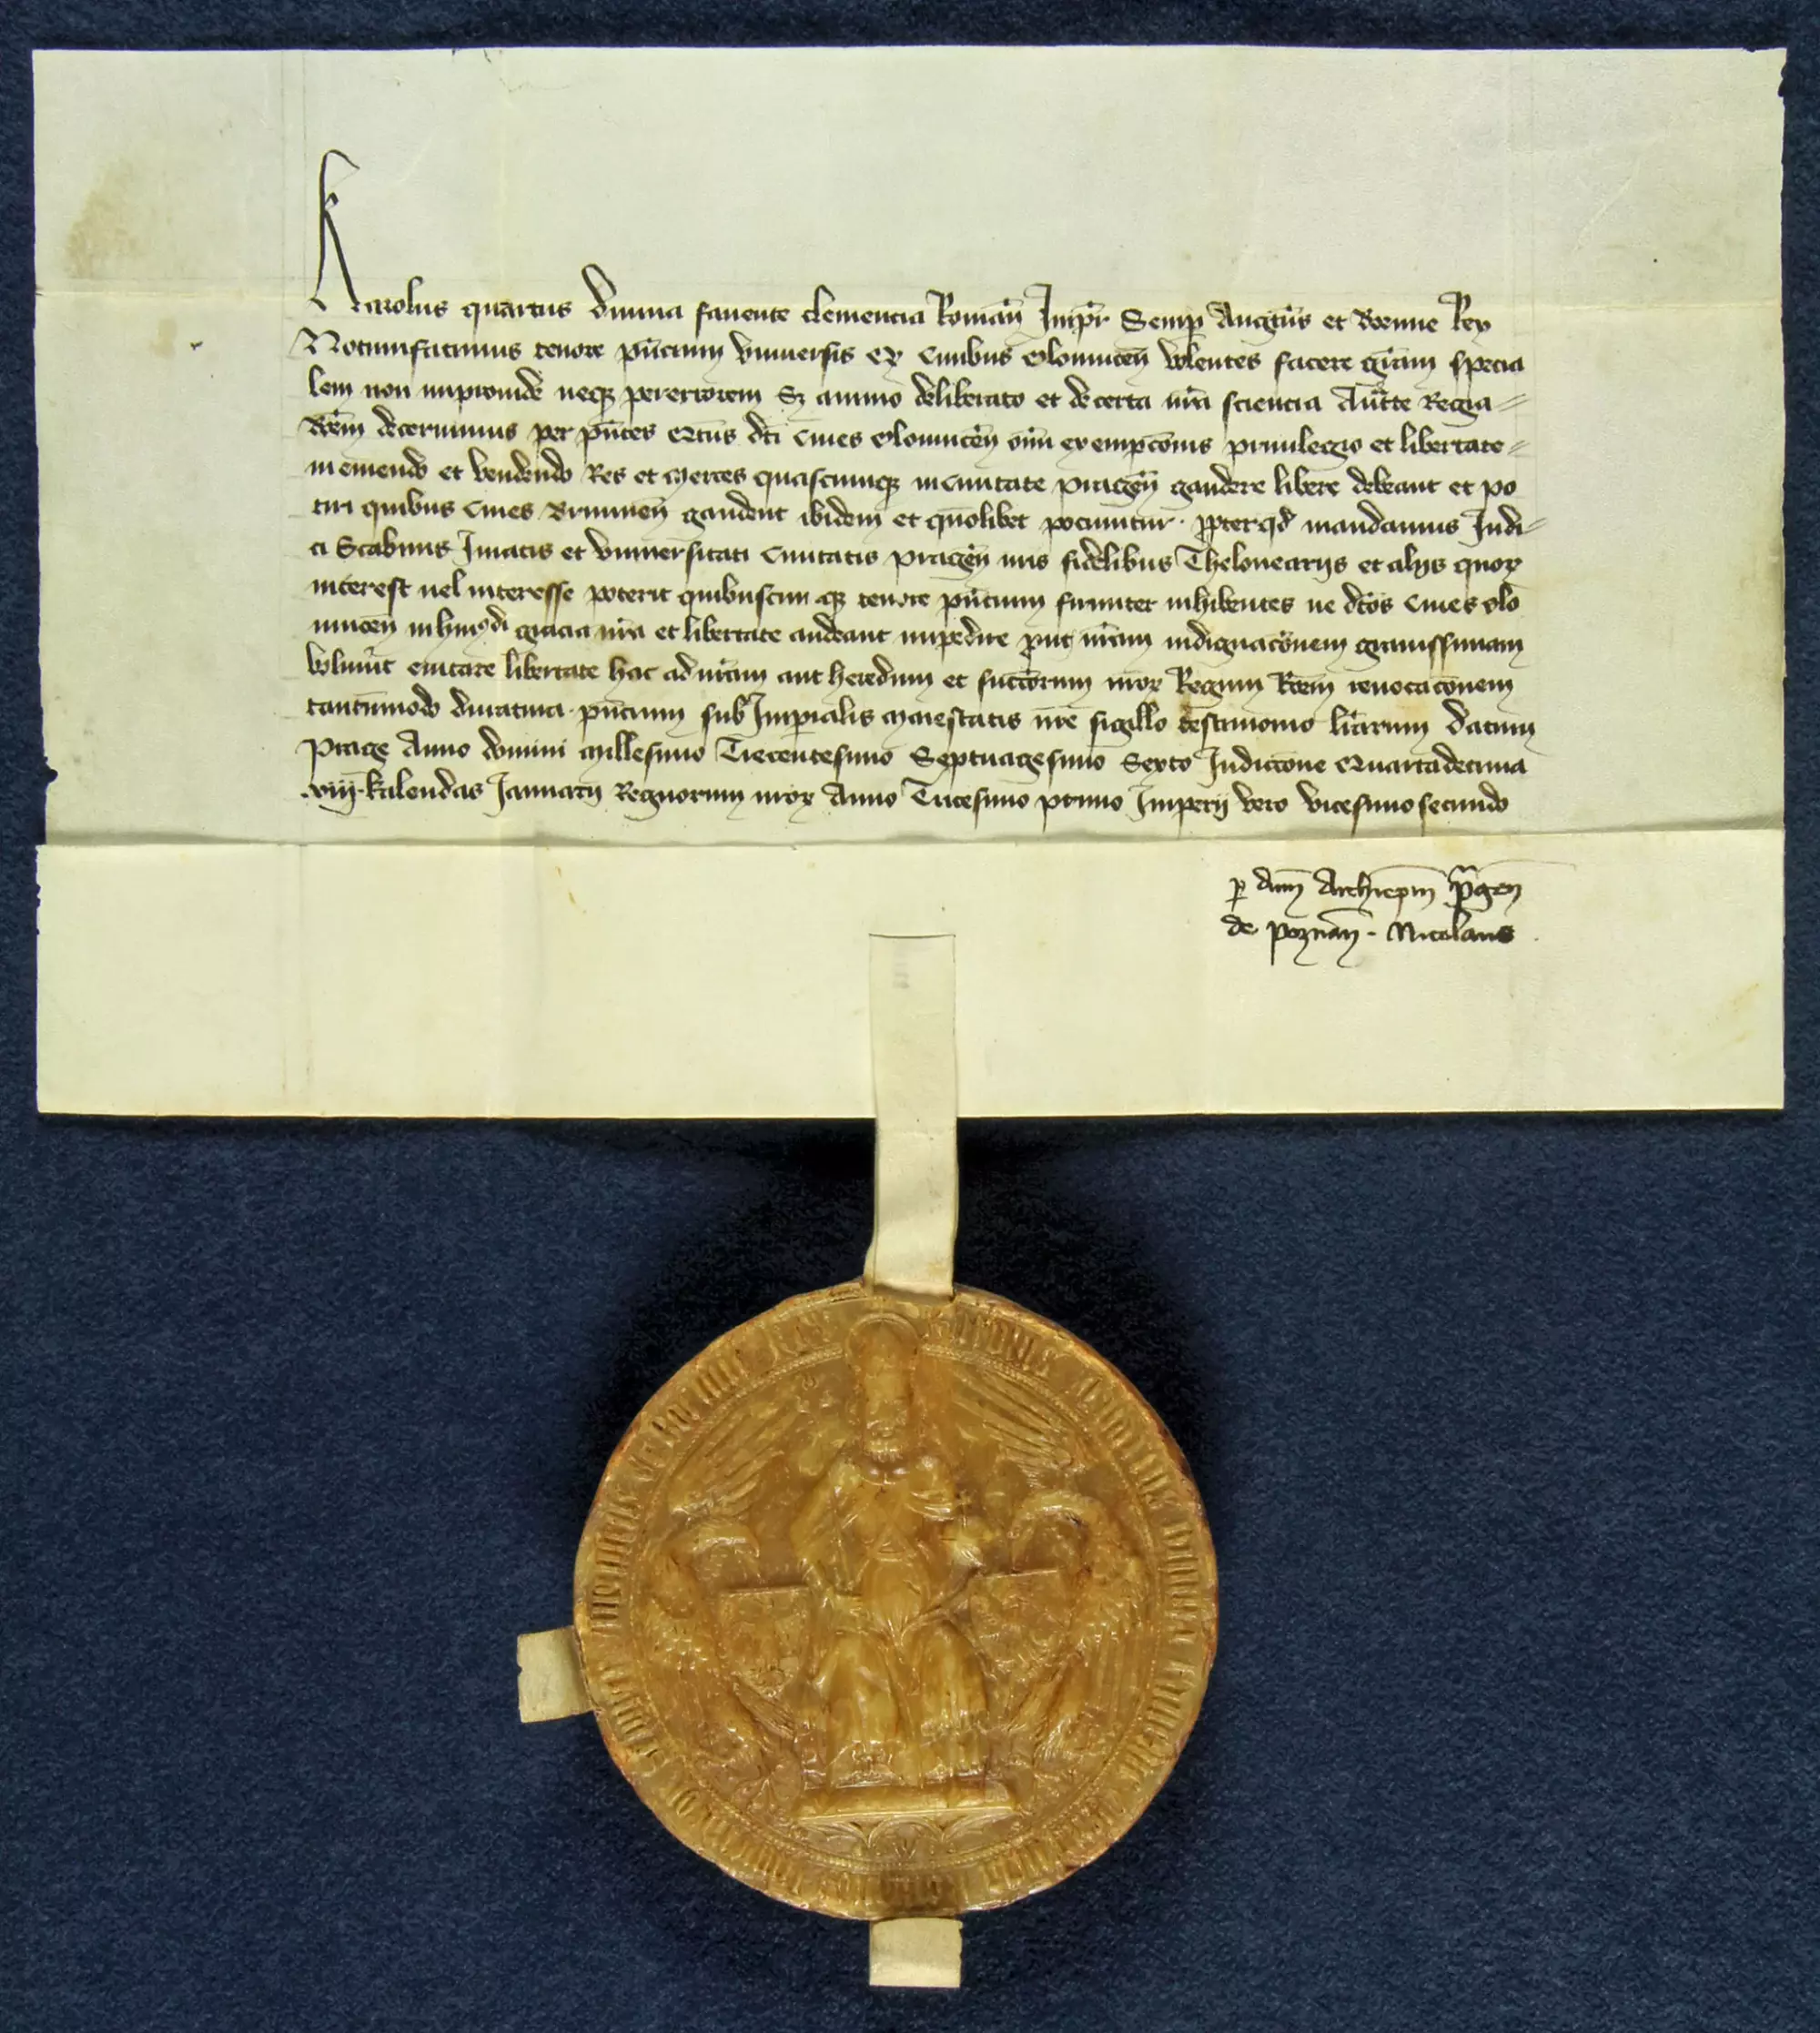 Karolus quartus diuina fauente clemencia Romań Impr̃ Semp Auguſtꝰ et Boemie Rex
Notumfacimus tenore pñcium vniuersis Q̃ Ciuibus Olomuceñ volentes facere gr̃am specia
lem non improuide neqꝫ pererrorem Sꝫ animo deliberato et decerta nr̃a sciencia Auc̃te Regia
Boem̃ decernimus per pñtes Qtus dc̃i Ciues Olomuceñ om̃i exempcõnis priuilegio et libertate
inemendo et vendendo Res et Merces quascumqꝫ inCiuitate Prageñ gaudere libere debeant et po
tiri quibus Ciues Brunneñ gaudent ibidem et quõlibet pociuntur. ꝓpterqđ mandamus Iudi
ci Scabinis Iuratis et vniuersitati Ciuitatis Prageñ nr̃is fidelibus Thelonearijs et alijs quoꝝ
interest uel interesse poterit quibuscumqꝫ tenore pñcium firmiter inhibentes ne dc̃os Ciues Olo
muceñ inhuiꝰmodi gracia nr̃a et libertate audeant impedire ꝓut nr̃am indignacõnem grauissimam
voluer̃t euitare libertate hac ad nr̃am aut heredum et succc̃orum nr̃oꝝ Regum Boem̃ reuocacõnem
tantũmodo duratura. pñcium sub Imperialis Maiestatis nr̃e sigillo testimonio lr̃arum Datum
Prage Anno domini Millesimo Trecentesimo Septuagesimo Sexto Indiccõne Quartadecima
.viij. kalendas Ianuarij Regnorum nr̃oꝝ Anno Tricesimo primo Imperij vero vicesimo secundo
ꝑ dñm Archiep̃m Prageñ
de Poznañ. Nicolaus